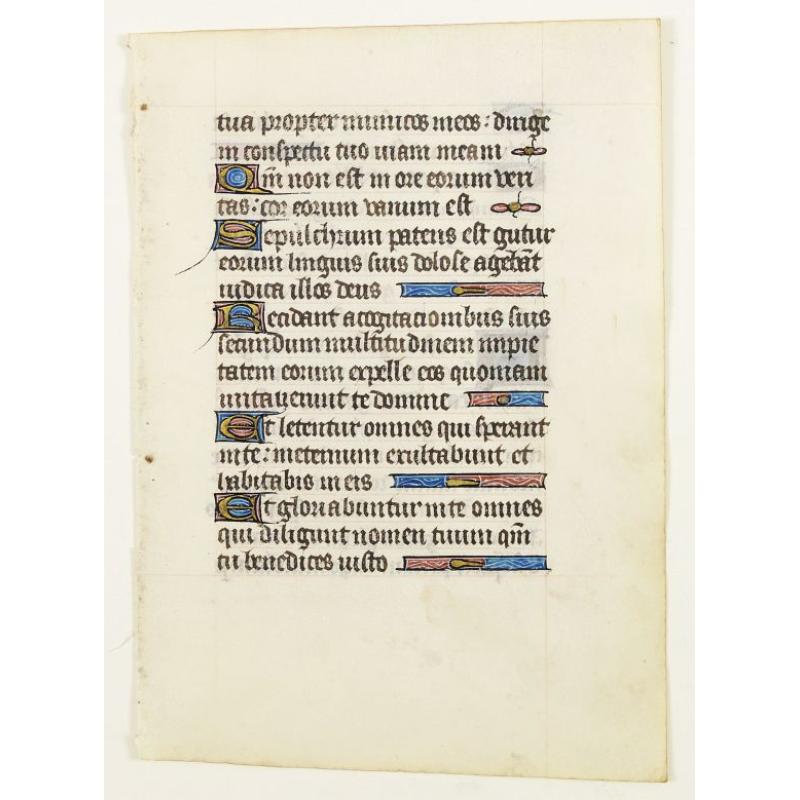 tua propter inimicos meos: dirige
in conspectu tuo uiam meam
Qm̄ non est in ore eorum veri
tas: cor eorum vanum est
Sepulchrum patens est gutur
eorum linguis suis dolose agebāt
iudica illos deus
Decidant a cogitacionibus suis
secundum multitudinem impie
tatem eorum expelle eos quoniam
irritauerunt te domine
Et letentur omnes qui sperant
in te: in eternum exultabunt et
habitabis in eis
Et gloriabuntur in te omnes
qui diligunt nomen tuum qm̄
tu benedices iusto